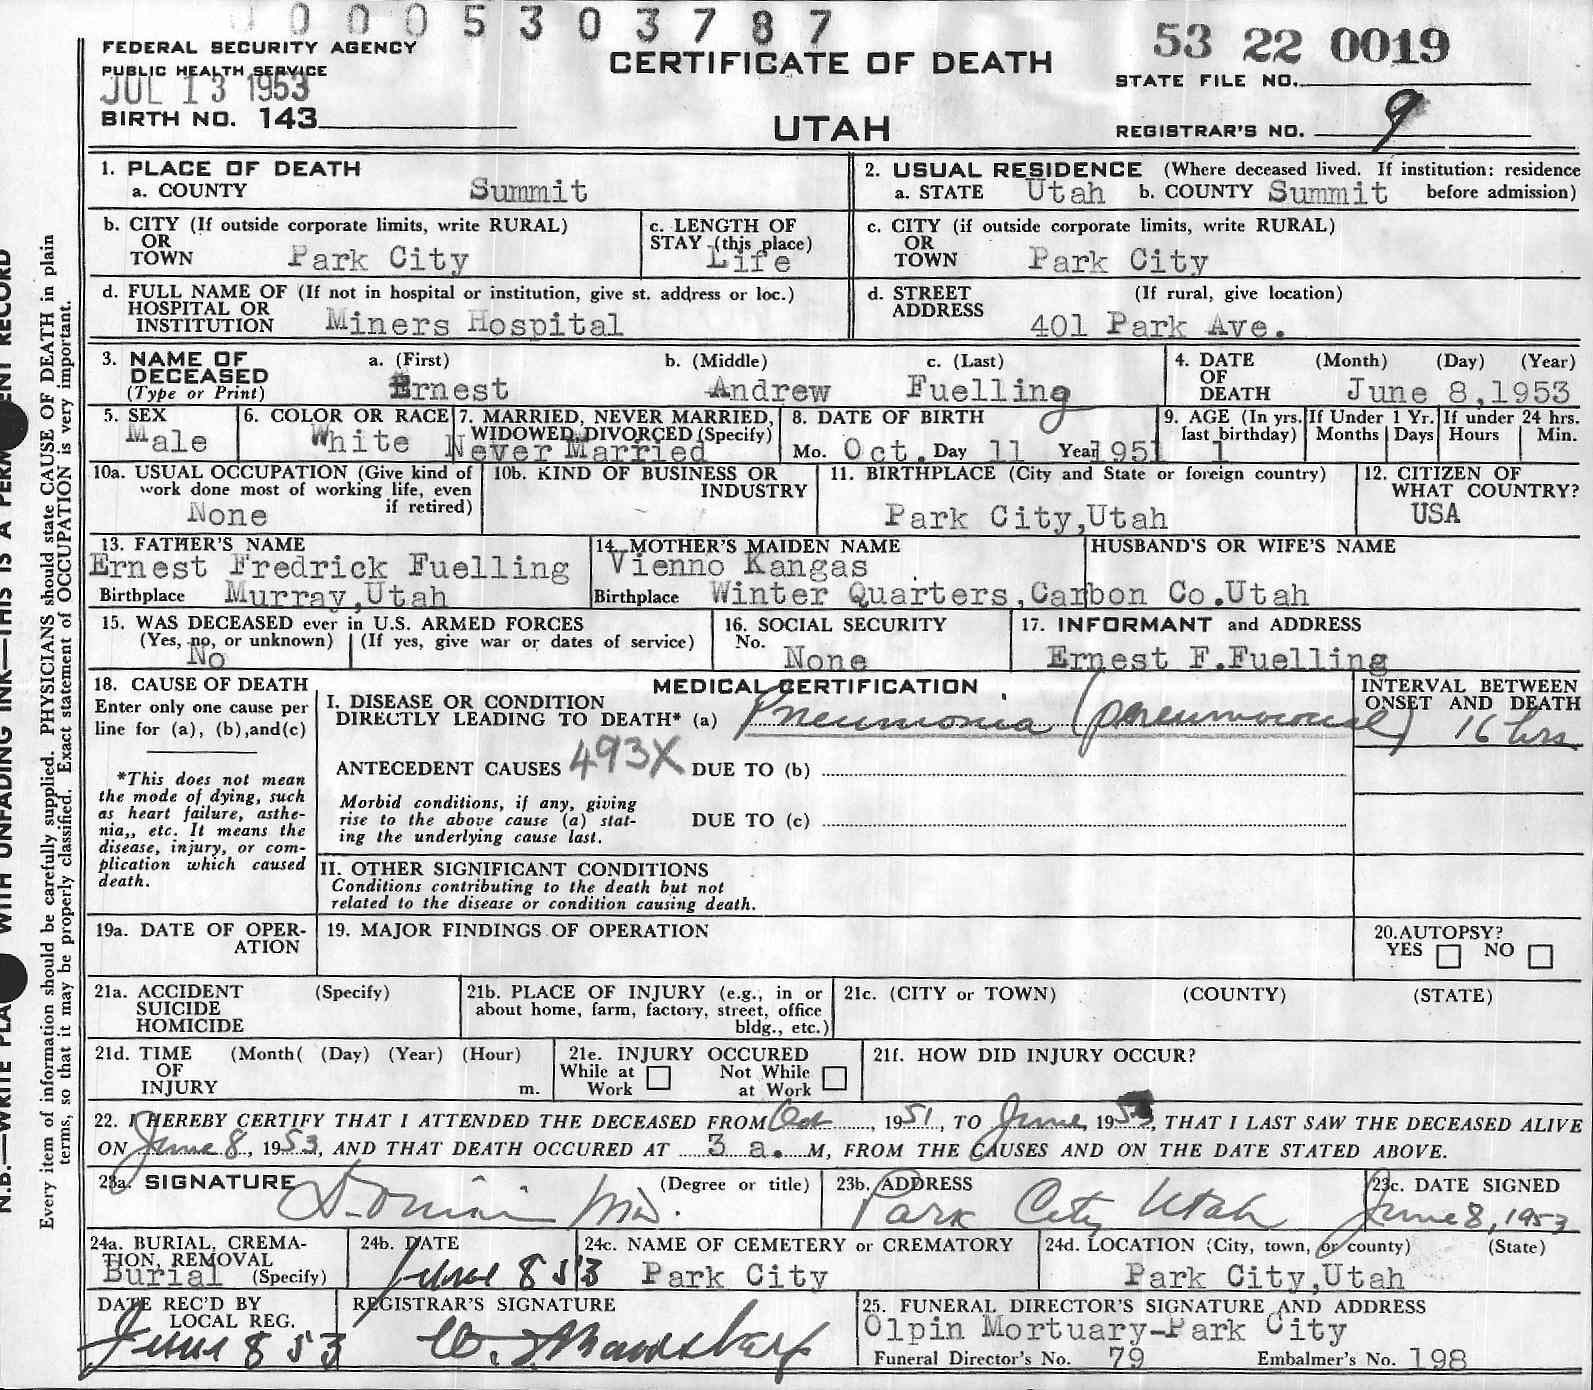 0005303787
FEDERAL SECURITY AGENCY
PUBLIC HEALTH SERVICE
JUL 13 1953
BIRTH NO. 143
CERTIFICATE OF DEATH
UTAH
53 22 0019
STATE FILE NO.
REGISTRAR'S NO. 9
N.B.—WRITE PLA WITH UNFADING INK—THIS IS A PERM ENT RECORD
Every item of information should be carefully supplied. PHYSICIANS should state CAUSE OF DEATH in plain
terms, so that it may be properly classified. Exact statement of OCCUPATION is very important.
1. PLACE OF DEATH
a. COUNTY Summit
2. USUAL RESIDENCE (Where deceased lived. If institution: residence
a. STATE Utah b. COUNTY Summit before admission)
b. CITY (If outside corporate limits, write RURAL)
OR
TOWN Park City
c. LENGTH OF
STAY (this place)
Life
c. CITY (if outside corporate limits, write RURAL)
OR
TOWN Park City
d. FULL NAME OF (If not in hospital or institution, give st. address or loc.)
HOSPITAL OR
INSTITUTION Miners Hospital
d. STREET (If rural, give location)
ADDRESS
401 Park Ave.
3. NAME OF a. (First) b. (Middle) c. (Last)
DECEASED
(Type or Print) Ernest Andrew Fuelling
4. DATE (Month) (Day) (Year)
OF
DEATH June 8,1953
5. SEX
Male
6. COLOR OR RACE
White
7. MARRIED, NEVER MARRIED,
WIDOWED, DIVORCED (Specify)
Never Married
8. DATE OF BIRTH
Mo. Oct. Day 11 Year 1951
9. AGE (In yrs.
last birthday) 1
If Under 1 Yr.
Months Days
If under 24 hrs.
Hours Min.
10a. USUAL OCCUPATION (Give kind of
work done most of working life, even
if retired)
None
10b. KIND OF BUSINESS OR
INDUSTRY
11. BIRTHPLACE (City and State or foreign country)
Park City,Utah
12. CITIZEN OF
WHAT COUNTRY?
USA
13. FATHER'S NAME
Ernest Fredrick Fuelling
Birthplace Murray,Utah
14. MOTHER'S MAIDEN NAME
Vienno Kangas
Birthplace Winter Quarters,Carbon Co.Utah
HUSBAND'S OR WIFE'S NAME
15. WAS DECEASED ever in U.S. ARMED FORCES
(Yes, no, or unknown) (If yes, give war or dates of service)
No
16. SOCIAL SECURITY
No.
None
17. INFORMANT and ADDRESS
Ernest F.Fuelling
18. CAUSE OF DEATH
Enter only one cause per
line for (a), (b),and(c)
*This does not mean
the mode of dying, such
as heart failure, asthe-
nia,, etc. It means the
disease, injury, or com-
plication which caused
death.
MEDICAL CERTIFICATION
I. DISEASE OR CONDITION
DIRECTLY LEADING TO DEATH* (a) Pneumonia (pneumococcal)
INTERVAL BETWEEN
ONSET AND DEATH
16 hrs
ANTECEDENT CAUSES 493X DUE TO (b)
Morbid conditions, if any, giving
rise to the above cause (a) stat-
ing the underlying cause last.
DUE TO (c)
II. OTHER SIGNIFICANT CONDITIONS
Conditions contributing to the death but not
related to the disease or condition causing death.
19a. DATE OF OPER-
ATION
19. MAJOR FINDINGS OF OPERATION
20.AUTOPSY?
YES NO
21a. ACCIDENT (Specify)
SUICIDE
HOMICIDE
21b. PLACE OF INJURY (e.g., in or
about home, farm, factory, street, office
bldg., etc.)
21c. (CITY or TOWN) (COUNTY) (STATE)
21d. TIME (Month( (Day) (Year) (Hour)
OF
INJURY m.
21e. INJURY OCCURED
While at Not While
Work at Work
21f. HOW DID INJURY OCCUR?
22. I HEREBY CERTIFY THAT I ATTENDED THE DECEASED FROM Oct, 1951, TO June, 1953, THAT I LAST SAW THE DECEASED ALIVE
ON June 8, 1953, AND THAT DEATH OCCURED AT 3 a. M, FROM THE CAUSES AND ON THE DATE STATED ABOVE.
23a. SIGNATURE (Degree or title)
MD.
23b. ADDRESS
Park City Utah
23c. DATE SIGNED
June 8, 1953
24a. BURIAL, CREMA-
TION, REMOVAL
Burial (Specify)
24b. DATE
June 8 53
24c. NAME OF CEMETERY or CREMATORY
Park City
24d. LOCATION (City, town, or county) (State)
Park City,Utah
DATE REC'D BY
LOCAL REG.
June 8 53
REGISTRAR'S SIGNATURE
25. FUNERAL DIRECTOR'S SIGNATURE AND ADDRESS
Olpin Mortuary-Park City
Funeral Director's No. 79 Embalmer's No. 198